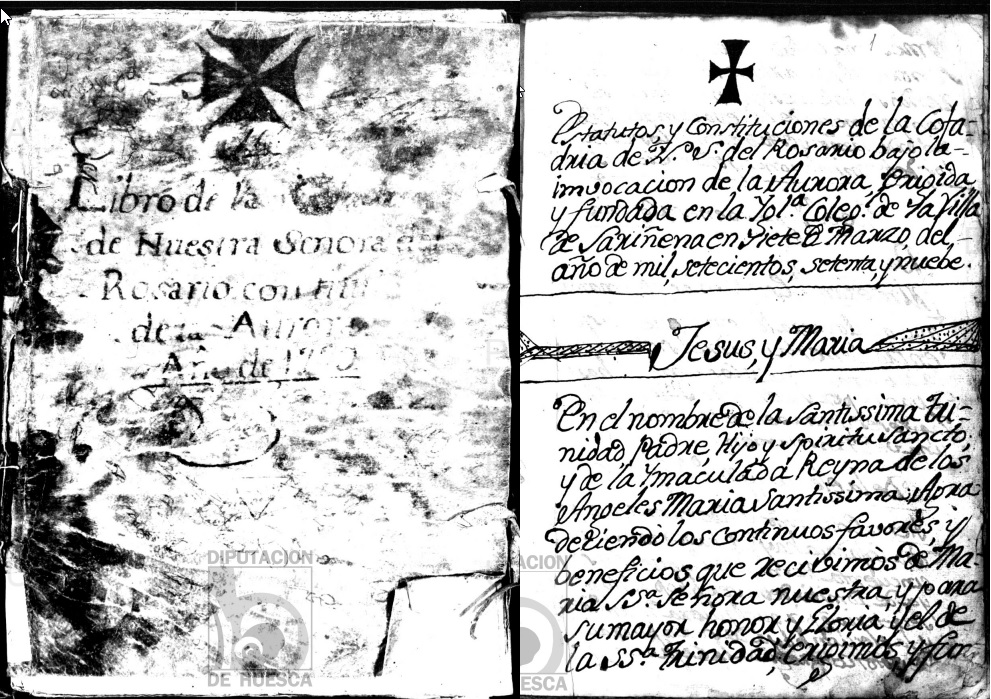 Libro de la
de Nuestra Senora del
Rosario con titu
de la Aurora
Año de 17
DIPUTACION
DE HUESCA
Estatutos, y Constituciones de la Cofa=
dria de N.ª S.ª del Rosario bajo la=
invocacion de la Aurora, Erigida
y fundada en la Yol.ª Coleg.l de la Villa
de Sariñena en Siete de Marzo, del,-
año de mil, setecientos, setenta, y nuebe.
Jesus, y Maria
En el nombre de la Santissima tri=
nidad Padre, Hijo y Spiritu Sancto,
y de la Ymaculada Reyna de los
Angeles Maria Santissima: Agra
deciendo los continuos favores, y
beneficios, que recivimos de Ma-
ria SS.ª Señora nuestra, y para
su mayor honor y Gloria, y el de
la SS.ª Trinidad, erigimos, y fun-
ACION
ESCA